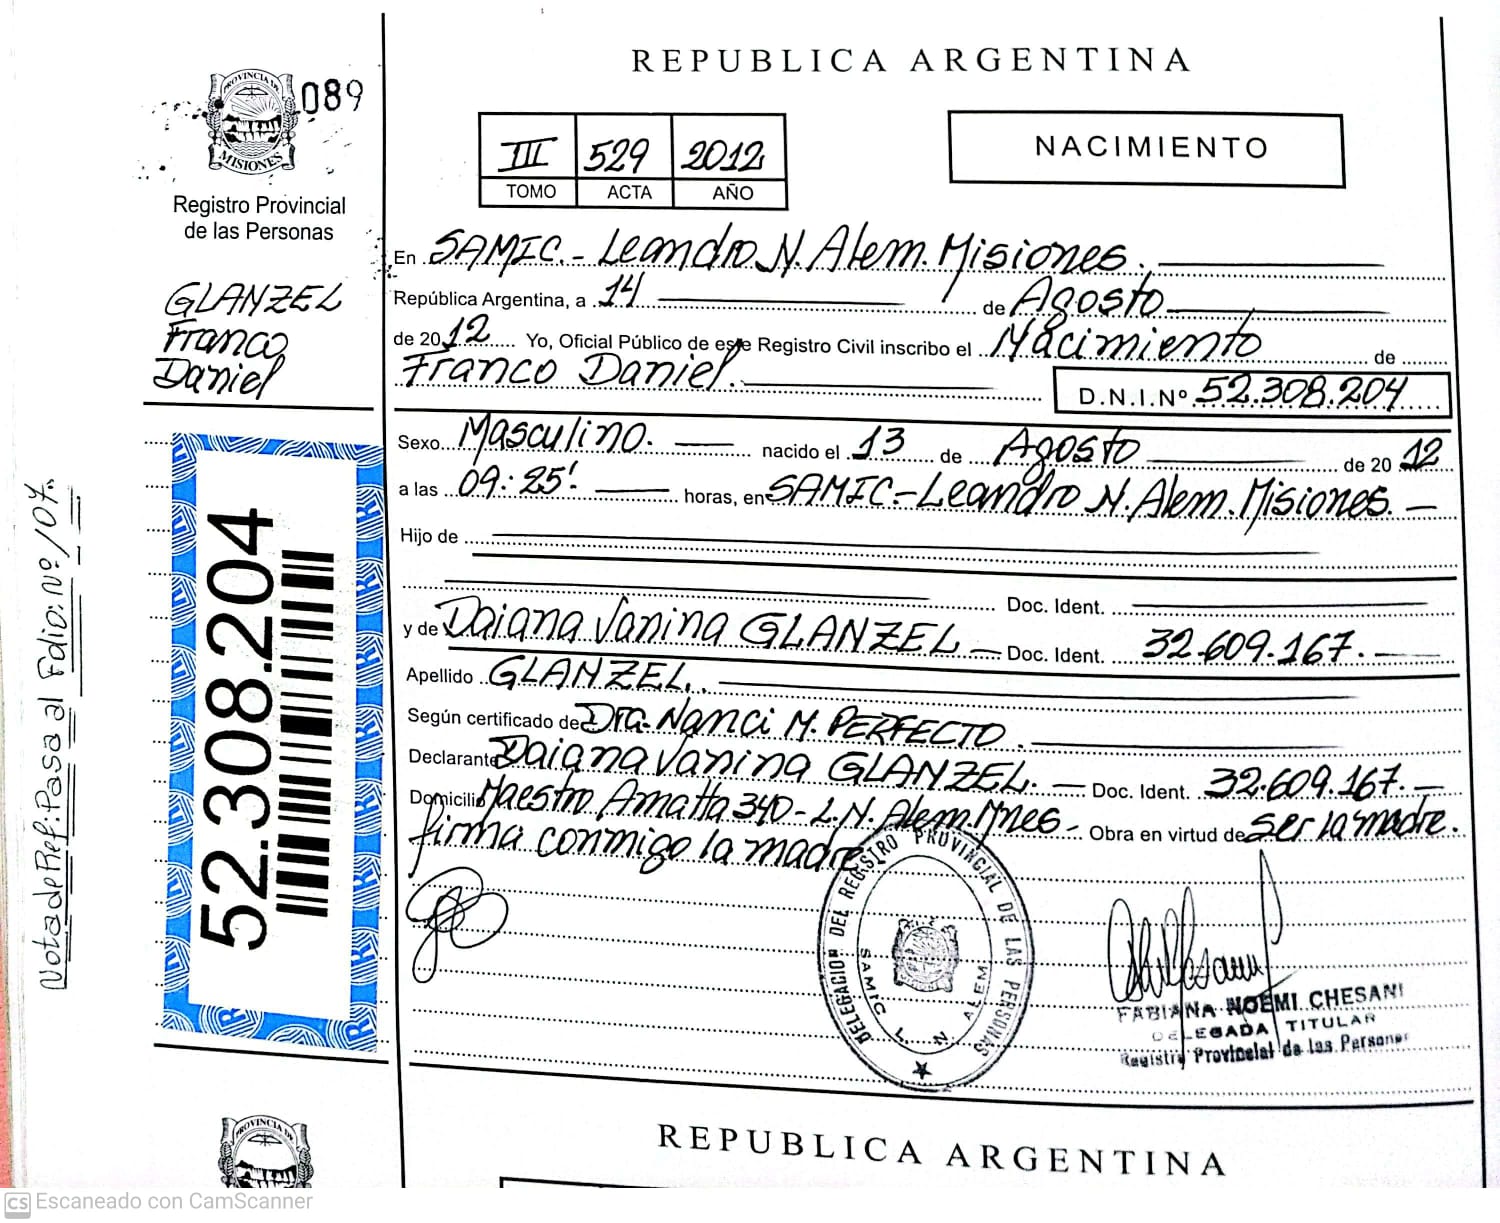 REPUBLICA ARGENTINA
PROVINCIA DE
MISIONES
089
Registro Provincial
de las Personas
III 529 2012
TOMO ACTA AÑO
NACIMIENTO
GLANZEL
Franco
Daniel
En SAMIC.- Leandro N. Alem. Misiones.
República Argentina, a 14 de Agosto
de 2012 Yo, Oficial Público de este Registro Civil inscribo el Nacimiento de
Franco Daniel.
D.N.I.Nº 52.308.204
Sexo Masculino. nacido el 13 de Agosto de 2012
a las 09:25' horas, en SAMIC.-Leandro N. Alem. Misiones. —
Hijo de
Doc. Ident.
y de Daiana Vanina GLANZEL — Doc. Ident. 32.609.167.—
Apellido GLANZEL.
Según certificado de Dra. Nanci M. PERFECTO.
Declarante Daiana Vanina GLANZEL. — Doc. Ident. 32.609.167.—
Domicilio Maestro Amatta 340- L.N. Alem. Mnes - Obra en virtud de ser la madre.
firma conmigo la madre
52.308.204
Nota de Ref: Pasa al Folio: Nº 107.
DELEGACION DEL REGISTRO PROVINCIAL DE LAS PERSONAS
SAMIC L. N. ALEM
FABIANA NOEMI CHESANI
DELEGADA TITULAR
Registro Provincial de las Personas
PROVINCIA DE
REPUBLICA ARGENTINA
CS Escaneado con CamScanner